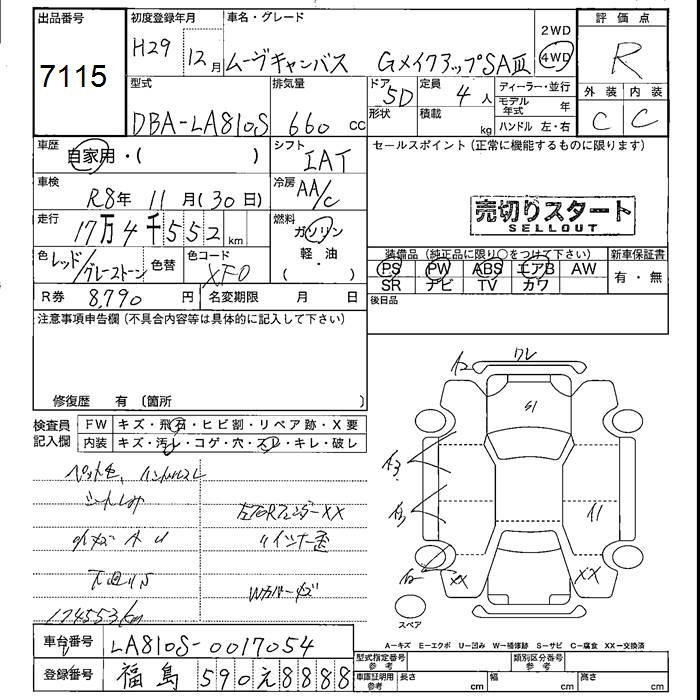 出品番号
7115
初度登録年月
H29 12月
車名・グレード
ムーヴキャンバス GメイクアップSAⅢ
2WD
4WD
評価点
R
外装 内装
C C
型式
DBA-LA810S
排気量
660 cc
ドア
5D
形状
定員
4人
積載 kg
ディーラー・並行
モデル年式 年
ハンドル 左・右
車歴
自家用・( )
シフト
IAT
車検
R8年 11月(30日)
冷房
AA/C
走行
17万4千552 km
燃料
ガソリン
軽・油
( )
色
レッド/グレーストーン
色替
色コード
XF0
R券 8,790円
名変期限 月 日
セールスポイント(正常に機能するものに限ります)
売切りスタート
SELLOUT
装備品(純正品に限り○をつけて下さい)
PS PW ABS エアB AW
SR ナビ TV カワ
新車保証書
有・無
後日品
注意事項申告欄(不具合内容等は具体的に記入して下さい)
修復歴 有(箇所 )
検査員記入欄
FW キズ・飛石・ヒビ割・リペア跡・X要
内装 キズ・汚レ・コゲ・穴・スレ・キレ・破レ
シートしみ
174553km
A2
ワレ
S1
A3
A3
A2
XX
A1
XX
スペア
A-キズ E-エクボ U-凹み W-補修跡 S-サビ C-腐食 XX-交換済
車台番号 LA810S-0017054
登録番号 福島 590 え 8888
型式指定番号 参考
類別区分番号 参考
車庫証明用 参考
長さ cm
幅 cm
高さ cm